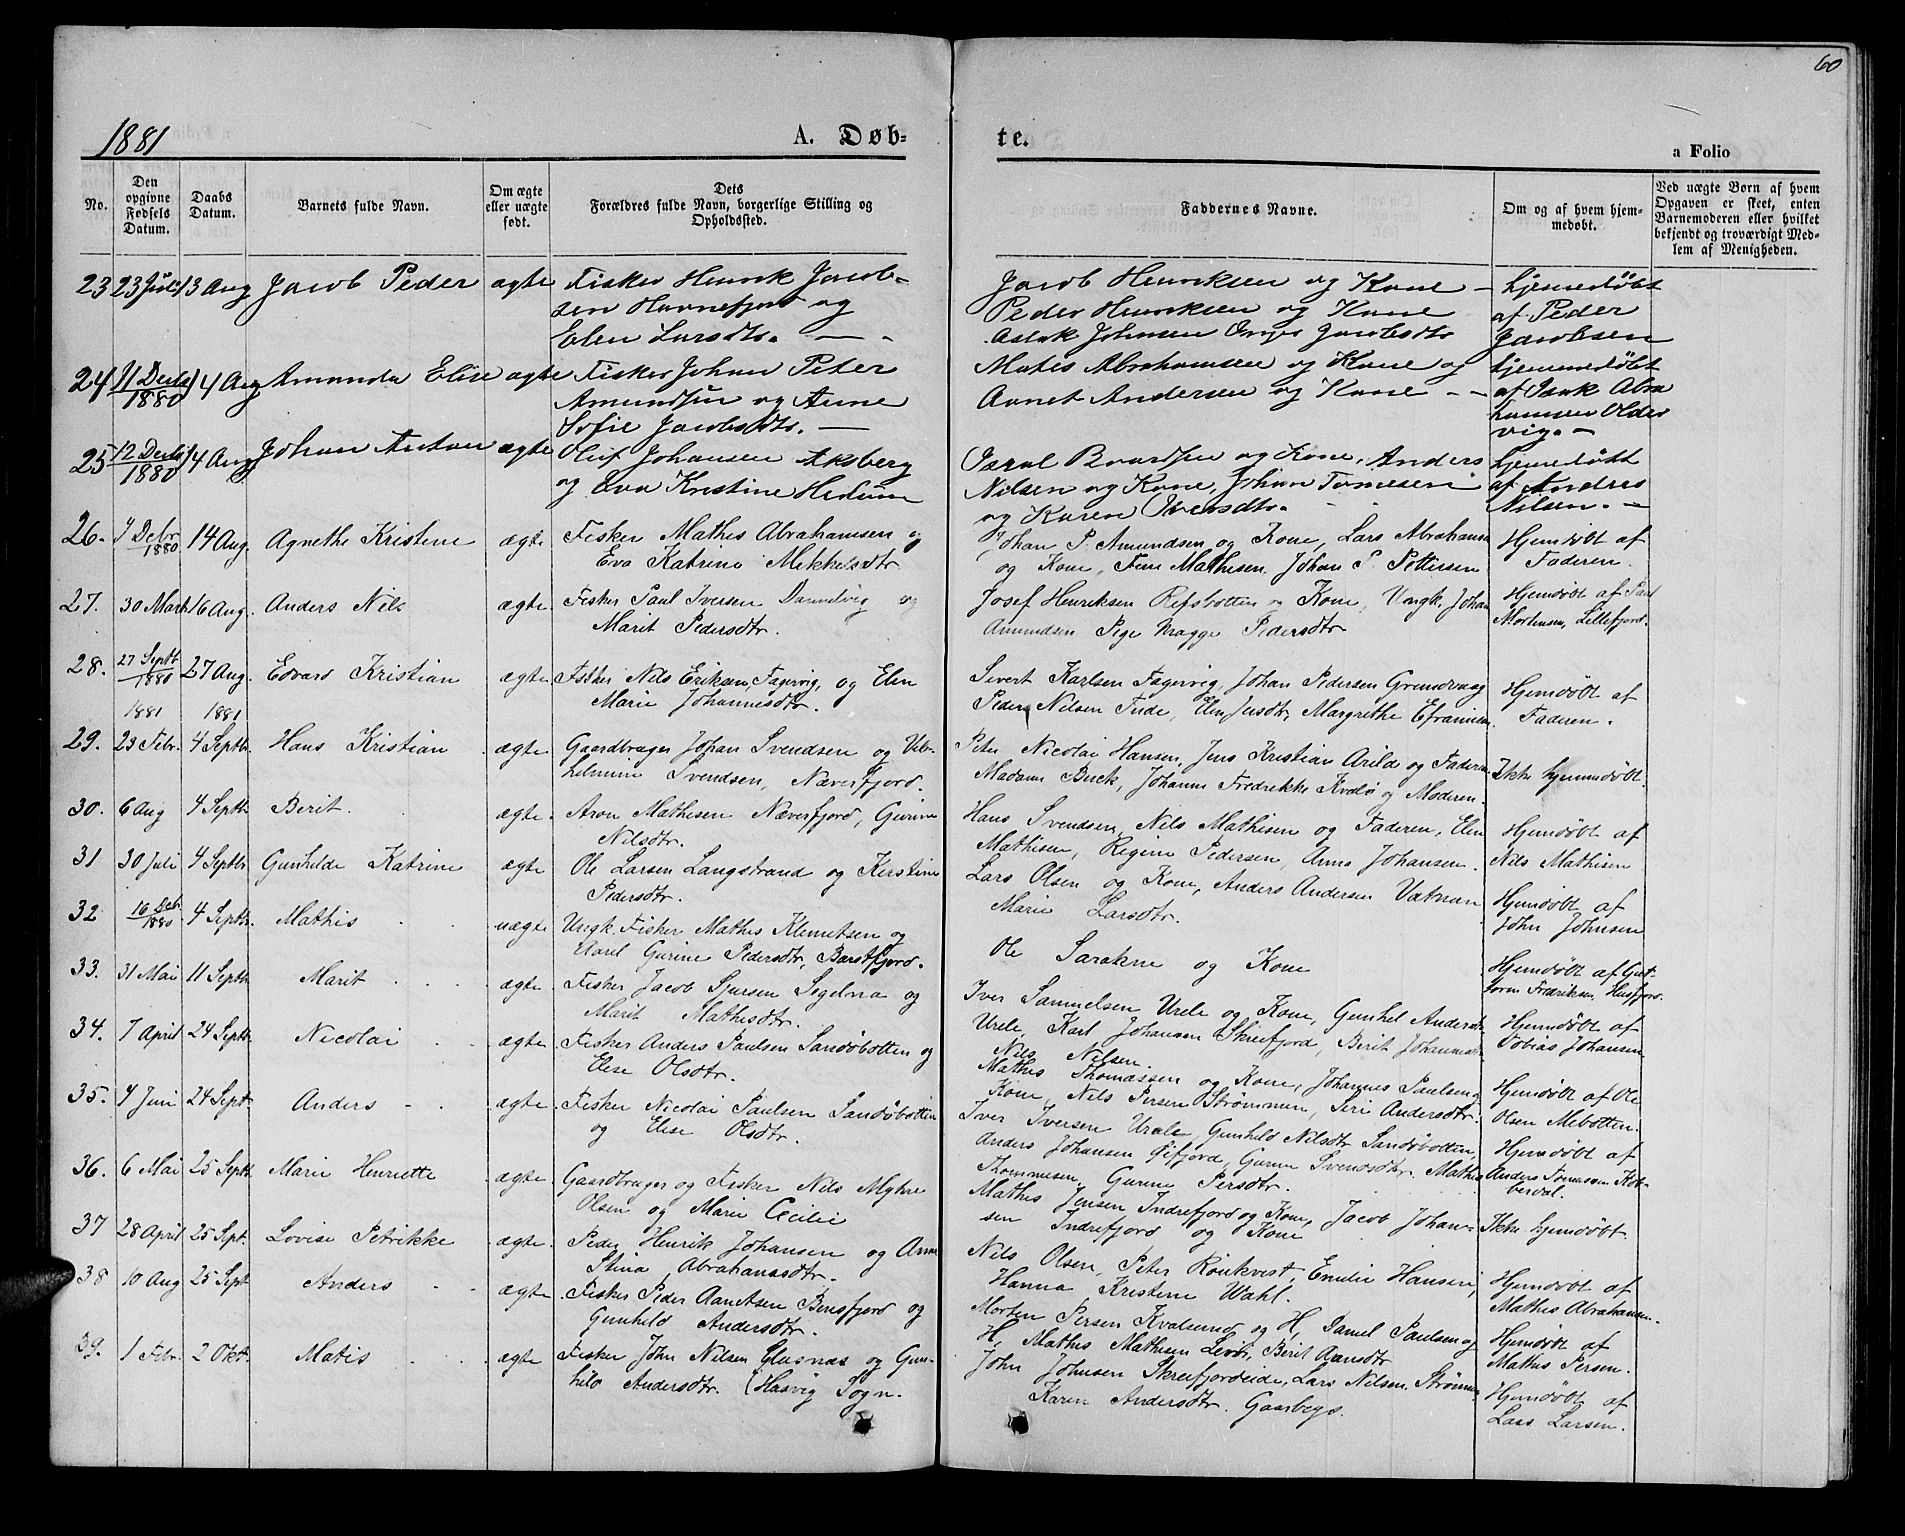 60
1881
A. Døb-
te.
a Folio
No.
Den opgivne Fødsels Datum.
Daabs Datum.
Barnets fulde Navn.
Om ægte eller uægte født.
Dets Forældres fulde Navn, borgerlige Stilling og Opholdssted.
Faddernes Navne.
Om og af hvem hjemmedøbt.
Ved uægte Børn af hvem Opgaven er skeet, enten Barnemoderen eller hvilket bekjendt og troværdigt Medlem af Menigheden.
23 23 Juli 13 Aug Jacob Peder ægte Fisker Henrik Jacob-
sen Havnefjord og
Elen Larsdtr.
Jacob Henriksen og Kone
Peder Henriksen og Kone
Aslak Johnsen Jacobsdtr
hjemmedøbt
af Peder
Jacobsen
24 11 Decbr 1880 14 Aug Amanda Elise ægte Fisker Johan Peter
Amundsen og Anne
Sofie Jacobsdtr.
Mates Abrahamsen og Kone og
Aanet Andersen og Kone
hjemmedøbt
af Isak Abra
hamsen Older
vig.
25 12 Decbr 1880 14 Aug Johan Anton ægte Oluf Johansen Aksberg
og Eva Kristine Hedum
Baardsen og Kone, Anders
Nilsen og Kone, Johan Tomesen
og Karen Iversdtr.
hjemmedøbt
af Andres
Nilsen.
26. 7 Debr 1880 14 Aug. Agnethe Kristene ægte Fisker Mathis Abrahamsen og
Eva Katrine Mikkelsdtr
Johan P. Amundsen og Kone, Lars Abrahams
og Kone, Mathisen, Johan P. Pettersen
Hjemdøbt af
Faderen.
27. 30 Marts 16 Aug. Anders Nils ægte Fisker Paul Iversen Dannelvig og
Marit Pedersdtr.
Josef Henriksen Refsbotten og Kone, Ungk. Johan
Amundsen Pige Magge Pedersdtr.
Hjemdøbt af Paul
Mortensen, Lillefjord.
28. 27 Septb 1880 27 Aug. Edvard Kristian ægte Fisker Nils Eriksen, Fagervig, og Elen
Marie Johannesdtr.
Sivert Karlsen Fagervig, Johan Pedersen Grundvaag
Peder Nilsen Elen Jensdtr, Margrethe Efraimsen
Hjemdøbt af
Faderen.
1881 1881
29. 23 Febr. 4 Septbr. Hans Kristian ægte Gaardbruger Johan Svendsen og Vil-
helmine Svendsen, Næverfjord.
Peter Nicolai Hansen, Jens Kristian Arild og Faderen
Madame Buck, Johanne Fredrikke Kvalø og Moderen.
Ikke hjemmdøbt.
30. 6 Aug 4 Septbr Berit ægte. Aron Mathisen Næverfjord, Gurine
Nilsdtr.
Hans Svendsen, Nils Mathisen og Faderen, Elen
Mathisen, Regine Pedersen, Anna Johansen.
Hjemdøbt af
Nils Mathisen
31 30 Juli 4 Septbr Gunhilde Katrine ægte Ole Larsen Langstrand og Kerstine
Pedersdtr.
Lars Olsen og Kone, Anders Andersen Vatnan
Marie Larsdtr.
Hjemdøbt af
John Johnsen
32 16 Deb 1880 4 Septbr. Mathis uægte Ungk. Fisker Mathis Klemetsen og
Gurine Pedersdtr, Barstfjord.
Ole Sarakne og Kone
Hjemdøbt af Gut-
torm Fredriksen, Husfjord.
33. 31 Mai 11 Septbr Marit ægte Fisker Jacob Sjursen Segelna og
Marit Mathisdtr.
Iver Samuelsen Urele og Kone, Gunhel Andersdtr
Urele, Karl Johansen Skreifjord, Berit Johannesdtr
Nils Nilsen.
Hjemdøbt af
Tobias Johansen
34. 7 April 24 Septbr Nicolai ægte Fisker Anders Paulsen Sandøbotten og
Else Olsdtr.
Mathis Thomassen og Kone, Johannes Paulsen og
Kone, Nils Persen Strømmen, Siri Andersdtr.
Hjemdøbt af Ole
Olsen Mebotten.
35. 4 Juni 24 Sept. Anders ægte Fisker Nicolai Paulsen Sandøbotten
og Elise Olsdtr.
Iver Iversen Urele, Gunhild Nilsdtr Sandøbotten,
Anders Johansen Øifjord, Gurine Svendsdtr. Mathis
Thommesen, Gurine Persdtr.
Hjemdøbt af
Anders Tomassen Kob-
berdal.
36. 6 Mai 25 Septb. Marie Henriette ægte Gaardbruger og Fisker Nils Myhre
Olsen og Marie Cecilie
Mathis Jensen Indrefjord og Kone, Jacob Johan-
sen Indrefjord og Kone
Ikke hjemdøbt
37 28 April 25 Sept. Lovise Petrikke ægte. Peder Henrik Johansen og Anne
Stina Abrahamsdtr.
Nils Olsen, Peter Rönkvist, Emilie Hansen,
Hanna Kristene Wahl.
Hjemdøbt af
Mathis Abrahamsen.
38 10 Aug 25 Sept Anders ægte Fisker Peder Aanetsen Bensfjord og
Gunhild Andersdtr.
Morten Persen Kvalsund og H, Daniel Paulsen og
H, Mathis Mathisen Levor, Berit Aansdtr
Hjemdøbt af
Mathis Persen.
39. 1 Febr. 2 Okt. Matis ægte Fisker John Nilsen Slusnæs og Gun-
hild Andersdtr. (Hasvig Sogn.
John Johnsen Skreifjordeide, Lars Nilsen Strømm.
Karen Andersdtr. Gaasbegs.
Hjemdøbt af
Lars Larsen.